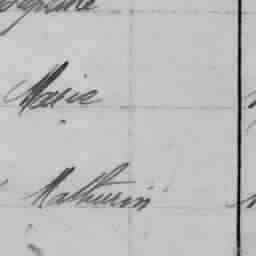 Marie
Mathurin